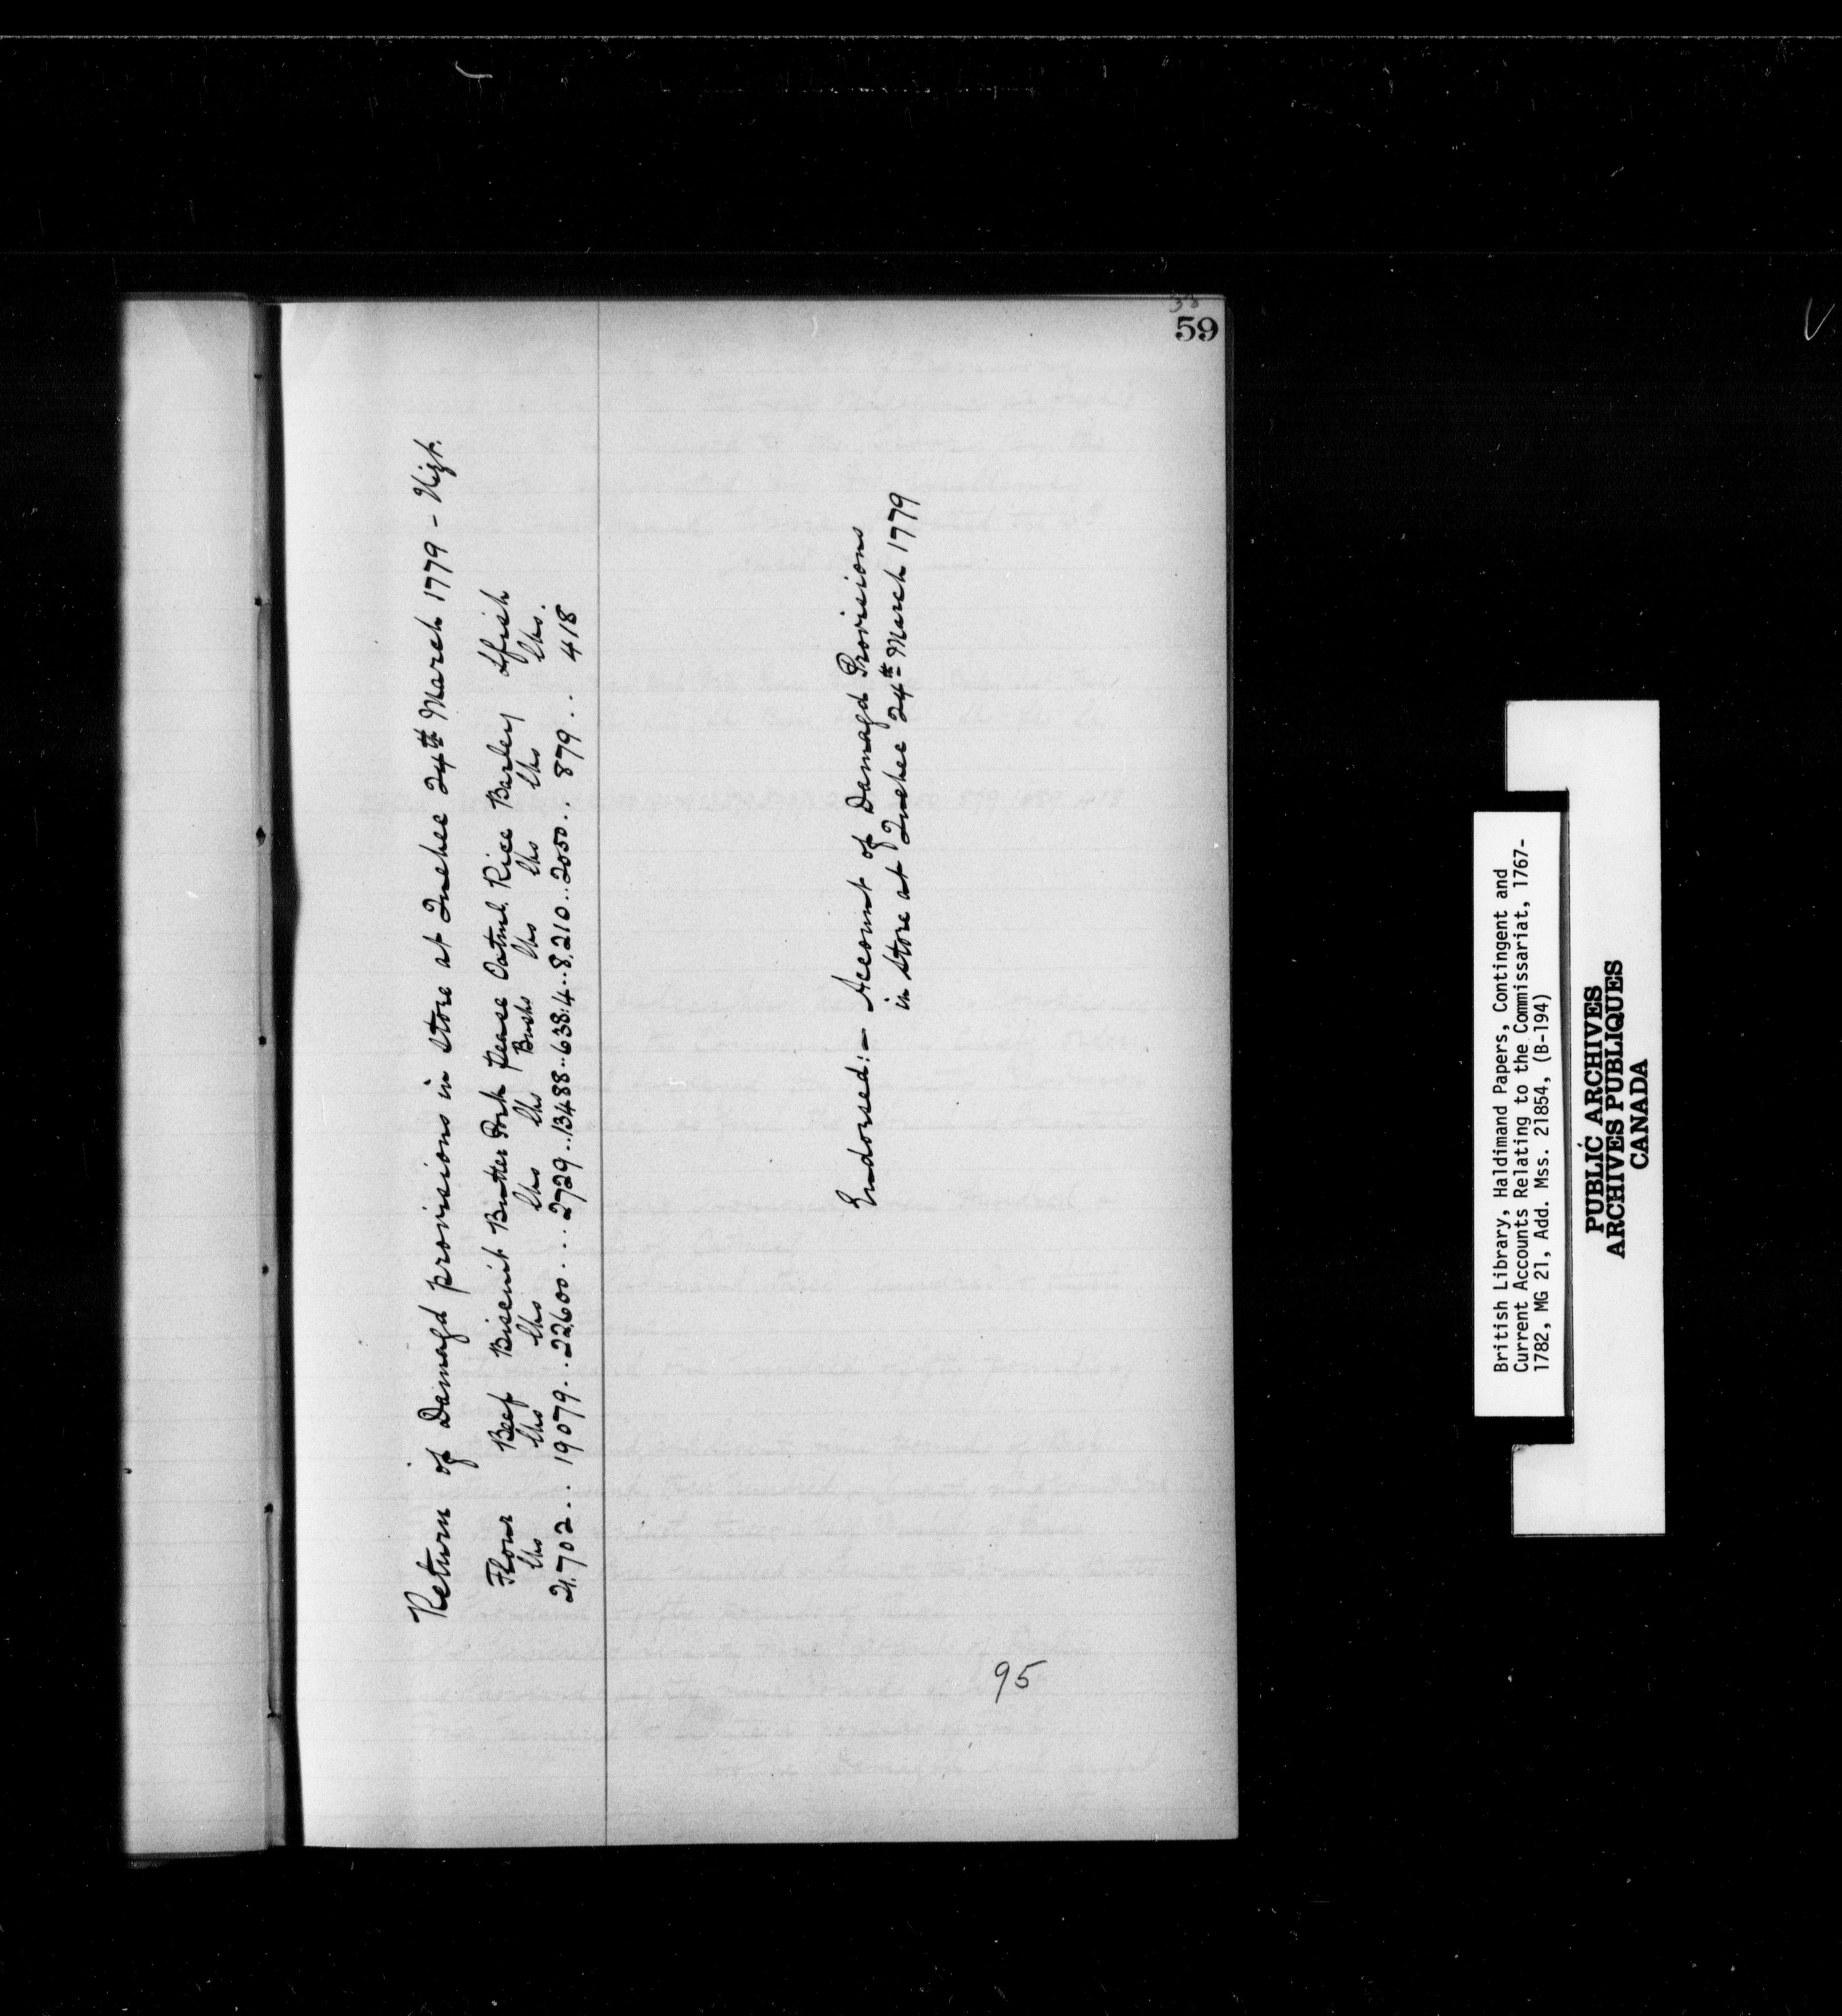 59
Return of Damagd provisions in store at Quebec 24th March 1779 - Vizt.
Flour Beef Biscuit Butter Pork Pease Oatml. Rice Barley Sfish
lbs lbs lbs lbs lbs Bushs lbs lbs lbs lbs.
21,702... 19079.. 22,600.... 2729.. 13488.. 638:4.. 8,210.. 2050... 879.. 418
Endorsed:- Account of Damagd Provisions
in store at Quebec 24th March 1779
95
British Library, Haldimand Papers, Contingent and
Current Accounts Relating to the Commissariat, 1767-
1782, MG 21, Add. Mss. 21854, (B-194)
PUBLIC ARCHIVES
ARCHIVES PUBLIQUES
CANADA